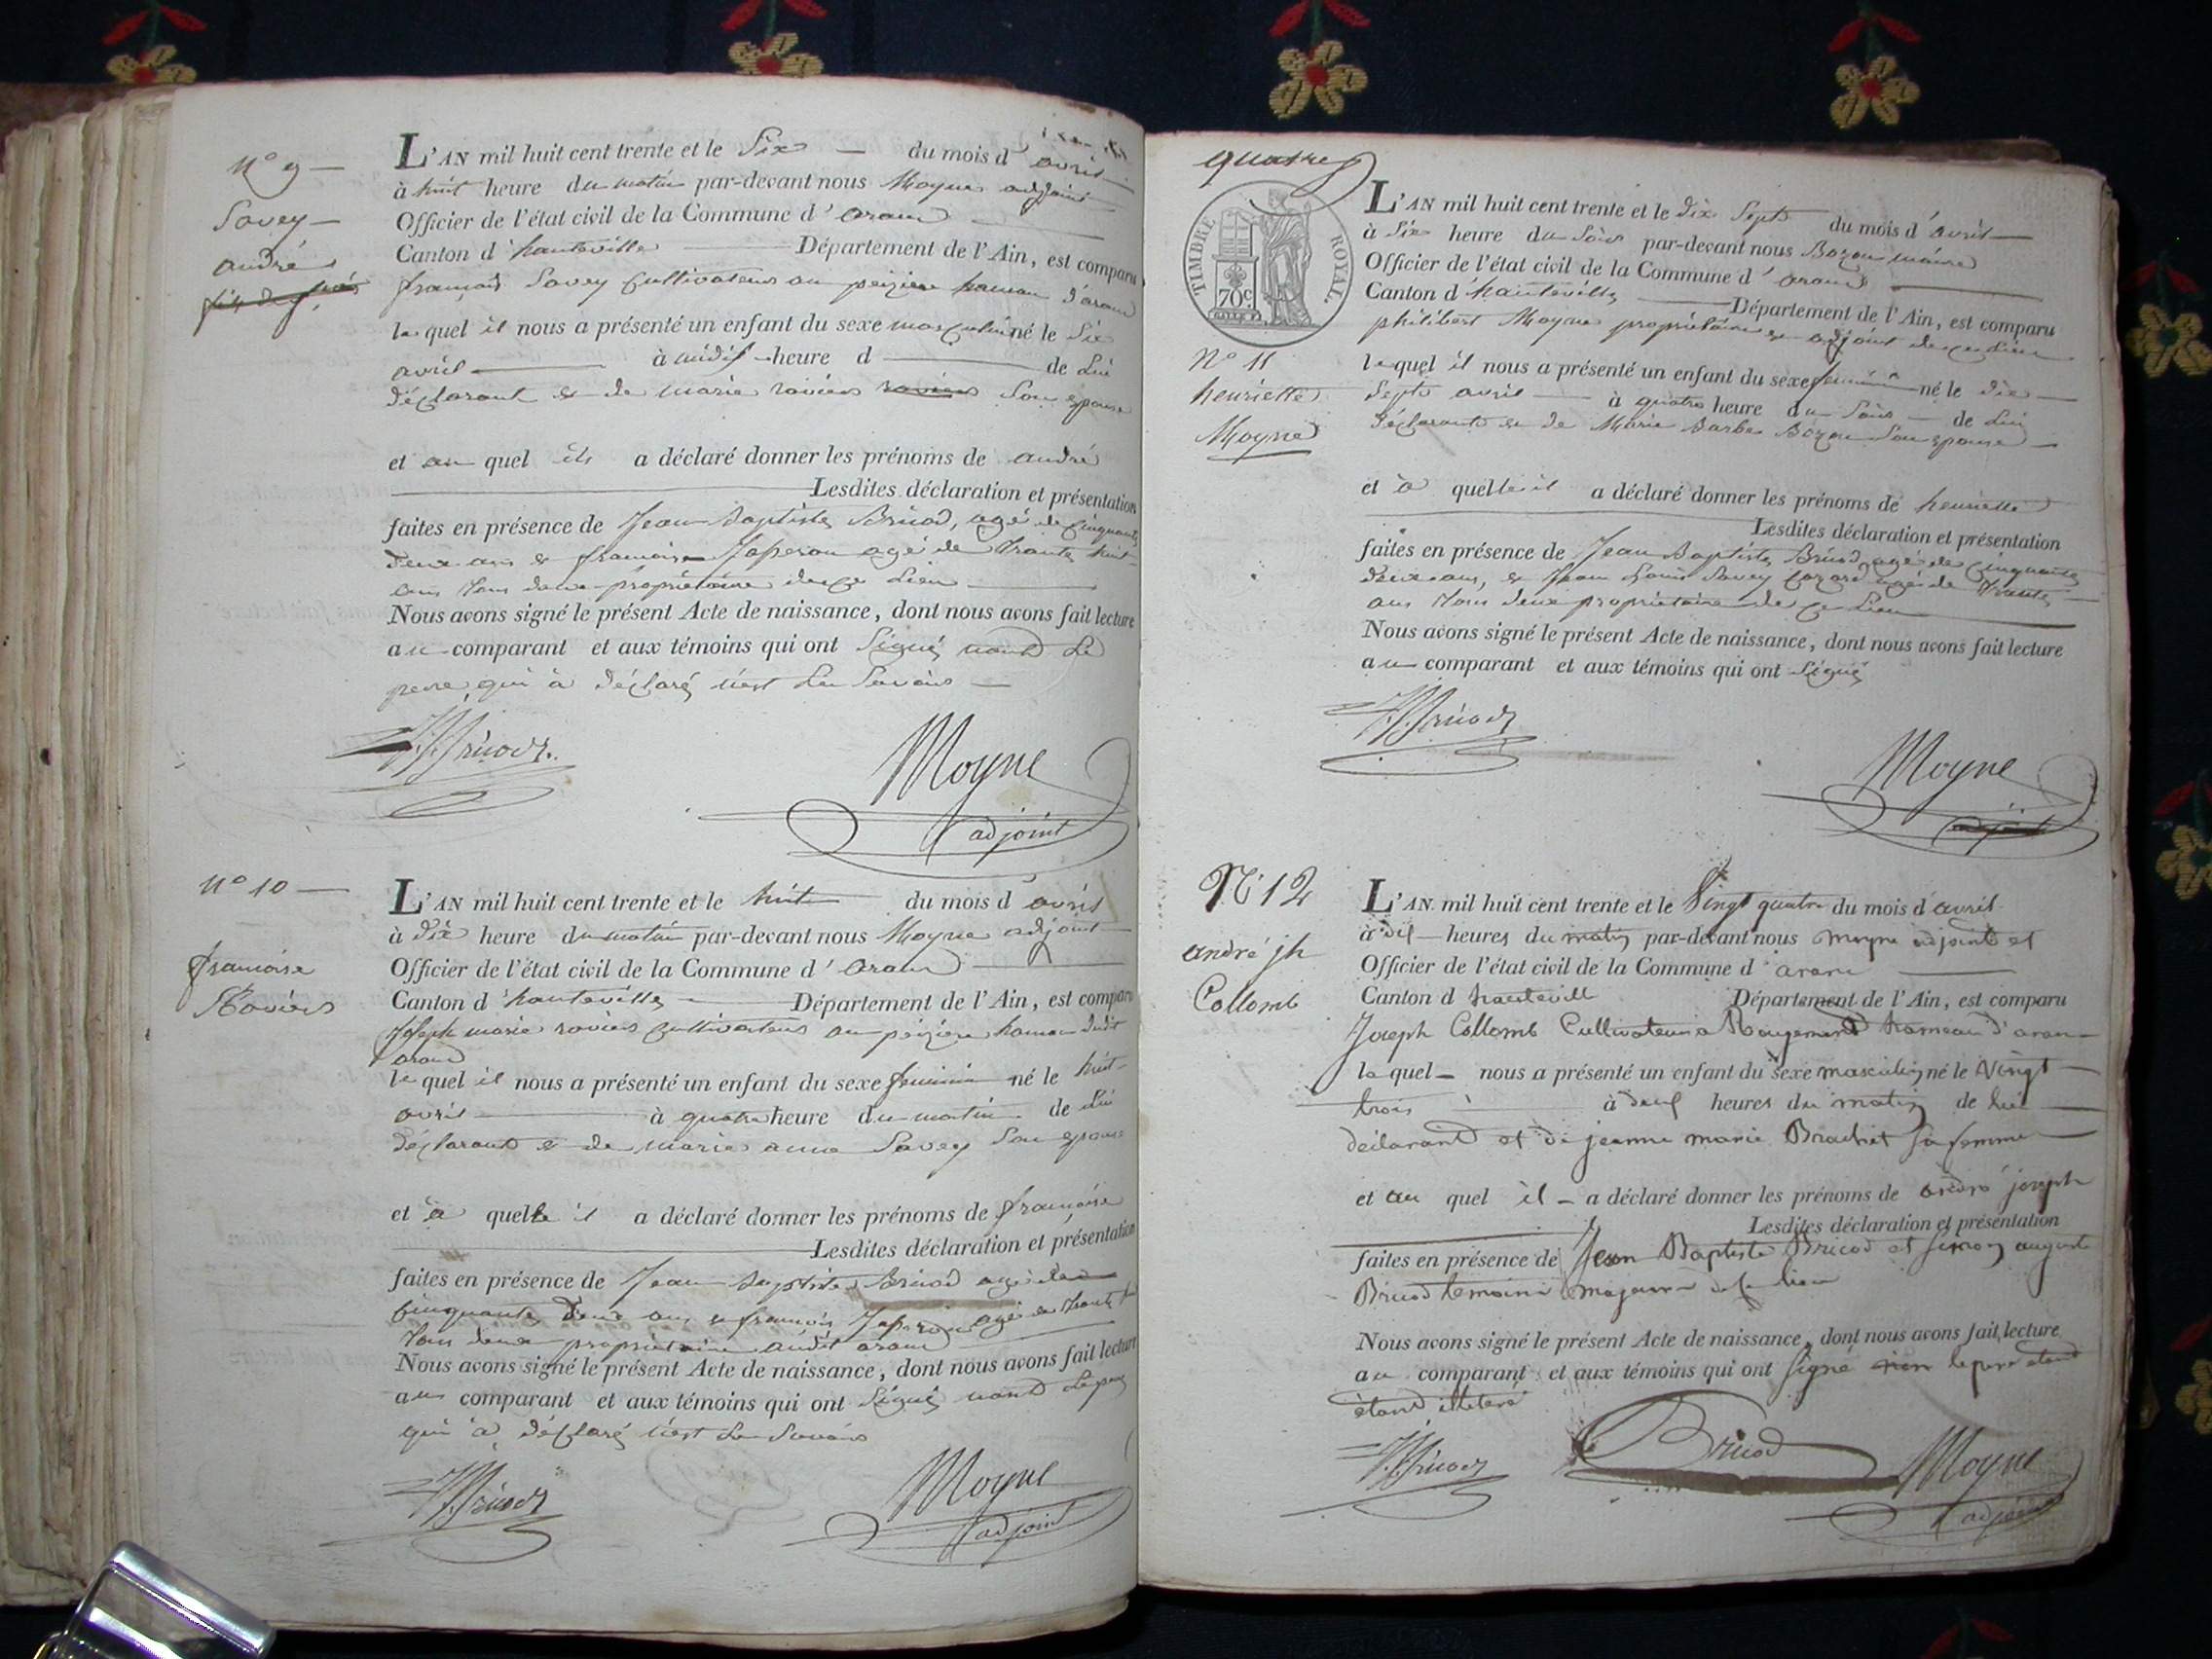 N° 9
Savey
André
fils de
L'AN mil huit cent trente et le Six du mois d'avril
à huit heure du matin par-devant nous Moyne adjoint
Officier de l'état civil de la Commune d'aranc
Canton d'hauteville Département de l'Ain, est comparu
françois Savey Cultivateur au peizière hamau d'aranc
le quel il nous a présenté un enfant du sexe masculin né le Six
avril à midis heure d de Lui
déclarant et de marie raviers raviers Son epouse
et au quel il a déclaré donner les prénoms de andré
Lesdites déclaration et présentation
faites en présence de Jean Baptiste Bricod, agé de Cinquante
deux ans et françois Japeron agé de trante huit
ans tous deux propriétaire de ce Lieu
Nous avons signé le présent Acte de naissance, dont nous avons fait lecture
au comparant et aux témoins qui ont Signé nond Le
pere qui à déclaré n'est Le Savoir
JB Bricod
Moyne
adjoint
N° 10
françoise
Raviers
L'AN mil huit cent trente et le huit du mois d'avril
à dix heure du matin par-devant nous Moyne adjoint
Officier de l'état civil de la Commune d'aranc
Canton d'hauteville Département de l'Ain, est comparu
Joseph marie raviers cultivateur au peizière hamau dudit
aranc
le quel il nous a présenté un enfant du sexe feminin né le huit
avril à quatre heure du matin de Lui
déclarant et de marie anne Savey Son epouse
et à quelle il a déclaré donner les prénoms de françoise
Lesdites déclaration et présentation
faites en présence de Jean Baptiste Bricod agé de
Cinquante deux ans et françois Japeron agé de trante
tous deux propriétaire audit aranc
Nous avons signé le présent Acte de naissance, dont nous avons fait lecture
au comparant et aux témoins qui ont Signé nond Le pere
qui à déclaré n'est Le Savoir
JB Bricod
Moyne
adjoint
quatre
TIMBRE ROYAL
70c
N° 11
henriette
Moyne
L'AN mil huit cent trente et le dix Septs du mois d'avril
à Six heure du Soir par-devant nous Bozon maire
Officier de l'état civil de la Commune d'aranc
Canton d'hauteville Département de l'Ain, est comparu
philibert Moyne propriétaire et adjoint de ce Lieu
lequel il nous a présenté un enfant du sexe feminin né le dix
Septs avril à quatre heure du Soir de Lui
déclarant et de Marie Barbe Bozon Son epouse
et à quelle il a déclaré donner les prénoms de henriette
Lesdites déclaration et présentation
faites en présence de Jean Baptiste Bricod, agé de Cinquante
deux ans, et Jean Louis Savey agé de trante
ans tous deux propriétaire de ce Lieu
Nous avons signé le présent Acte de naissance, dont nous avons fait lecture
au comparant et aux témoins qui ont Signé
JB Bricod
Moyne
adjoint
N° 12
andré jh
Collomb
L'AN mil huit cent trente et le Vingt quatre du mois d'avril
à dix heures du matin par-devant nous moyne adjoint et
Officier de l'état civil de la Commune d'aranc
Canton d hauteville Département de l'Ain, est comparu
Joseph Collomb Cultivateur à Rougemont hameau d'aranc
le quel nous a présenté un enfant du sexe masculin né le Vingt
trois à deux heures du matin de lui
déclarant et de jeanne marie Brachet sa femme
et au quel il a déclaré donner les prénoms de andré joseph
Lesdites déclaration et présentation
faites en présence de Jean Baptiste Bricod et simon auguste
Bricod temoins majeurs de ce lieu
Nous avons signé le présent Acte de naissance, dont nous avons fait lecture
au comparant et aux témoins qui ont signé non le pere etant
étant illeteré
JB Bricod
Bricod
Moyne
adjoint